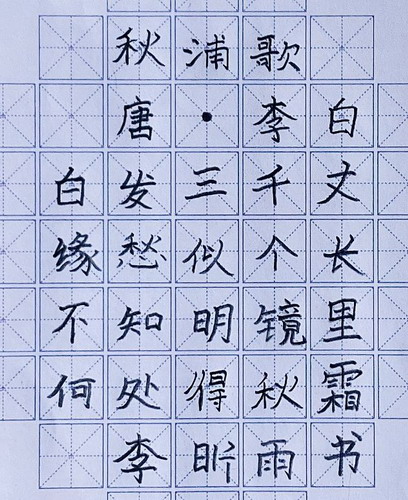 秋浦歌
唐·李白
白发三千丈
缘愁似个长
不知明镜里
何处得秋霜
李昕雨书